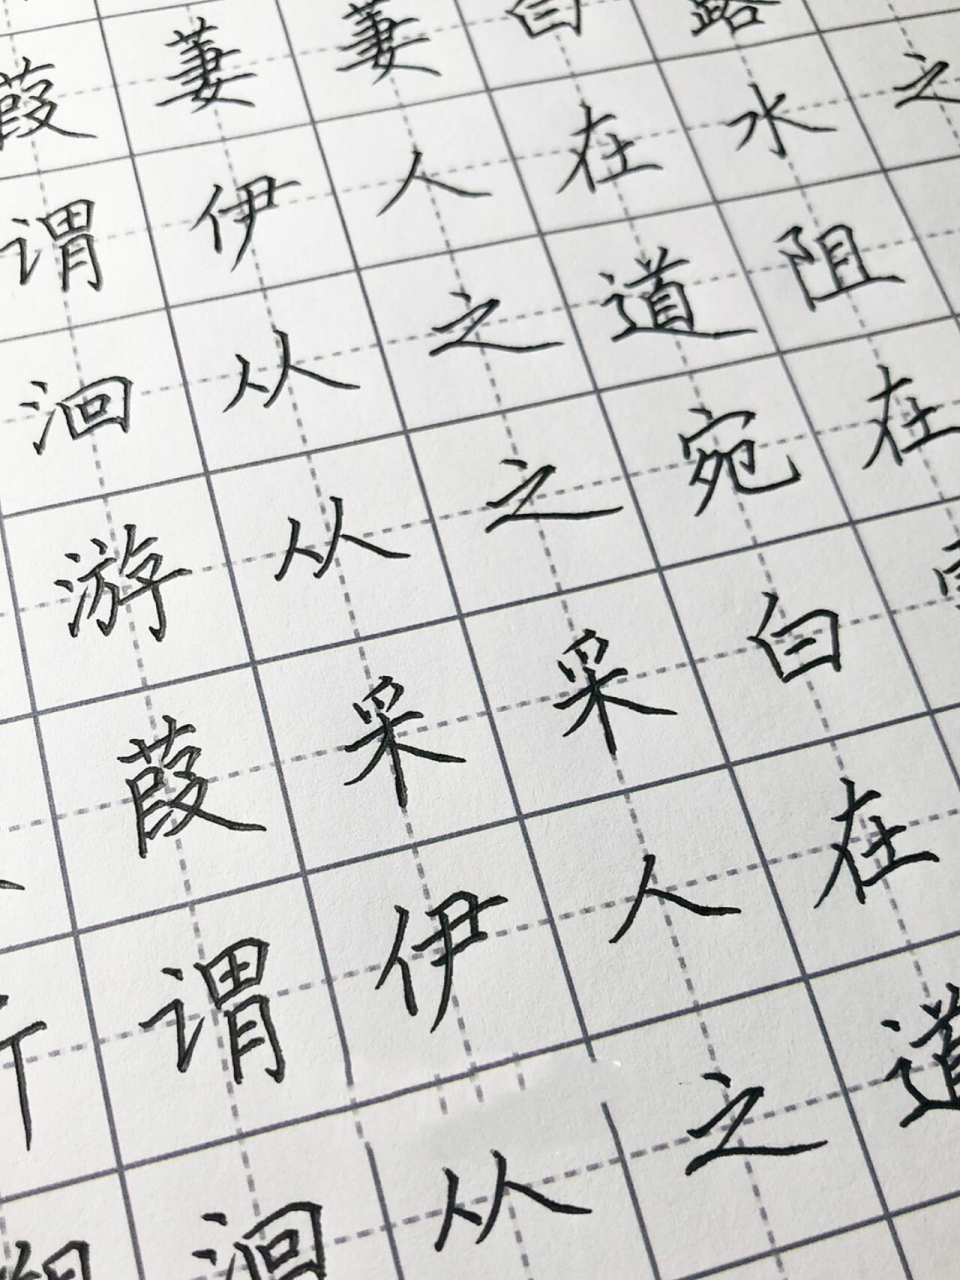 葭萋萋白露
谓伊人在水之
洄从之道阻
游从之宛在
葭采采白
所谓伊人在
洄从之道